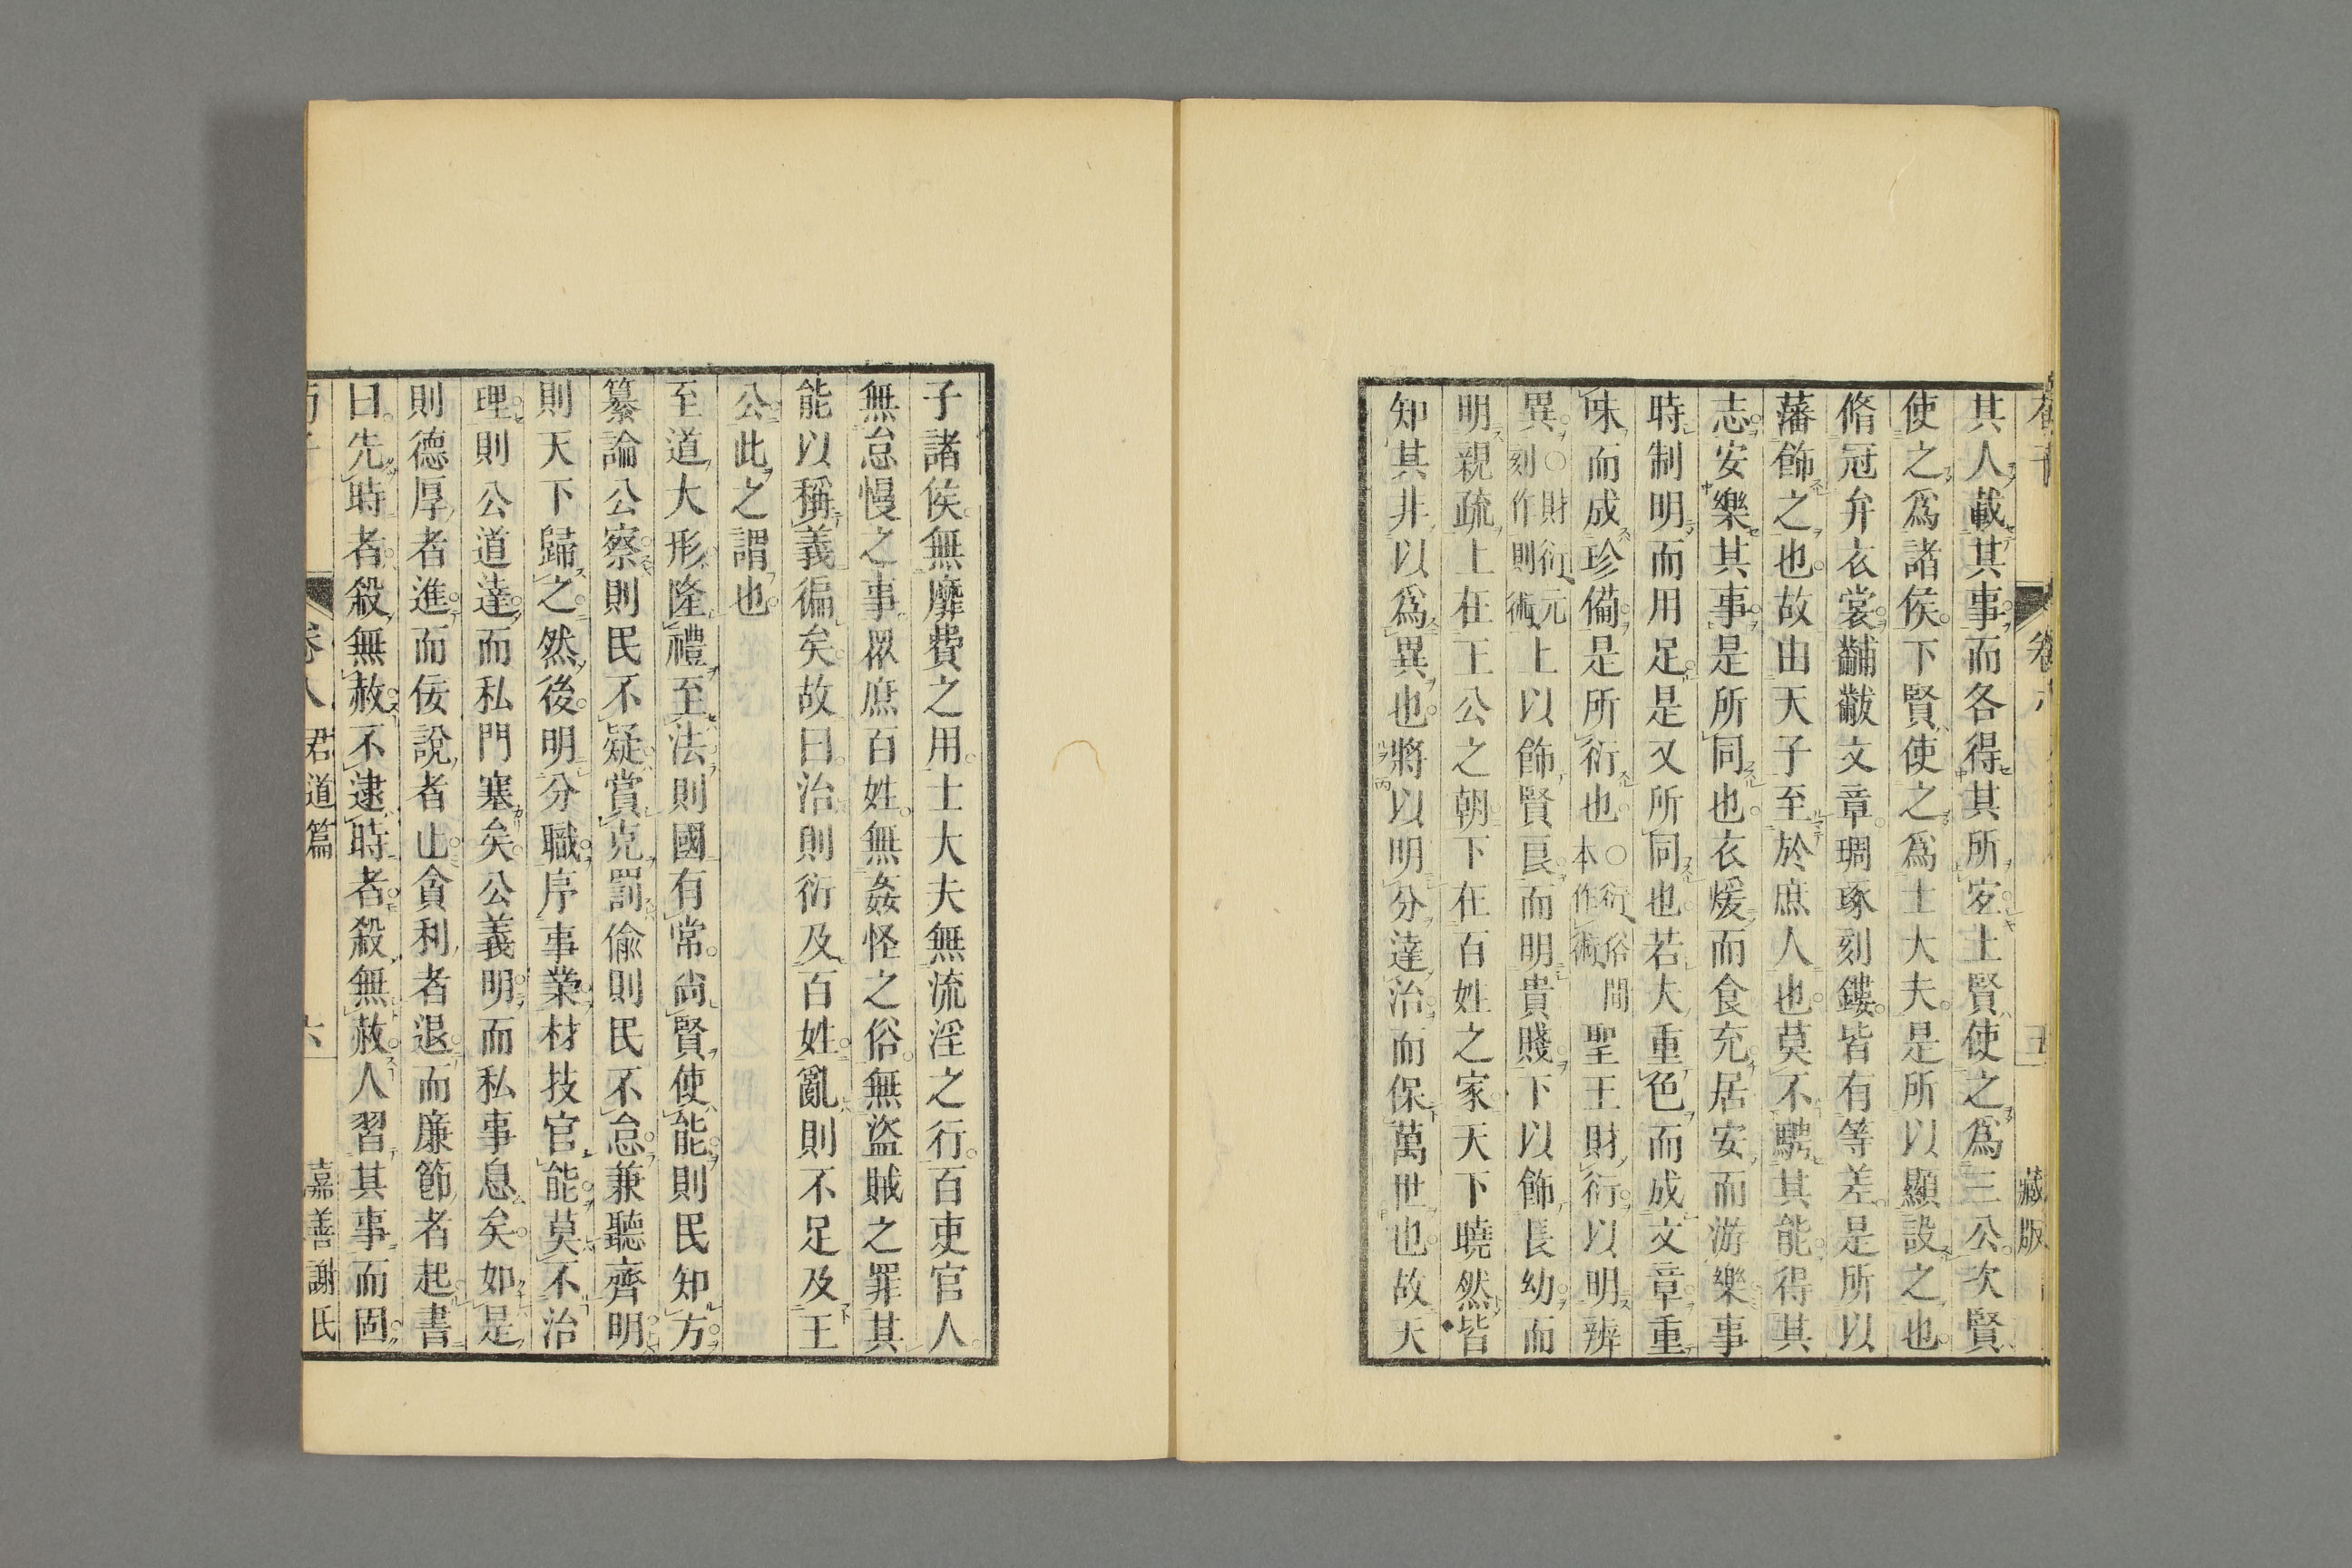 其人載其事而各得其所宐士賢使之爲三公次賢
使之爲諸侯下賢使之爲士大夫是所以顯設之也
脩冠弁衣裳黼黻文章琱琢刻鏤皆有等差是所以
藩飾之也故由天子至於庶人也莫不騁其能得其
志安樂其事是所同也衣煖而食充居安而游樂事
時制明而用足是又所同也若夫重色而成文章重
味而成珍備是所衍也○衍俗間本作術聖王財衍以明辨
異○財衍元刻作則術上以飾賢良而明貴賤下以飾長幼而
明親疏上在王公之朝下在百姓之家天下曉然皆
知其非以爲異也將以明分達治而保萬世也故天
藏版
子諸侯無靡費之用士大夫無流淫之行百吏官人
無怠慢之事眾庶百姓無姦怪之俗無盜賊之罪其
能以稱義徧矣故曰治則衍及百姓亂則不足及王
公此之謂也
至道大形隆禮至法則國有常尚賢使能則民知方
纂論公察則民不疑賞克罰偷則民不怠兼聽齊明
則天下歸之然後明分職序事業材技官能莫不治
理則公道達而私門塞矣公義明而私事息矣如是
則德厚者進而佞說者止貪利者退而廉節者起書
曰先時者殺無赦不逮時者殺無赦人習其事而固
君道篇 六 嘉善謝氏